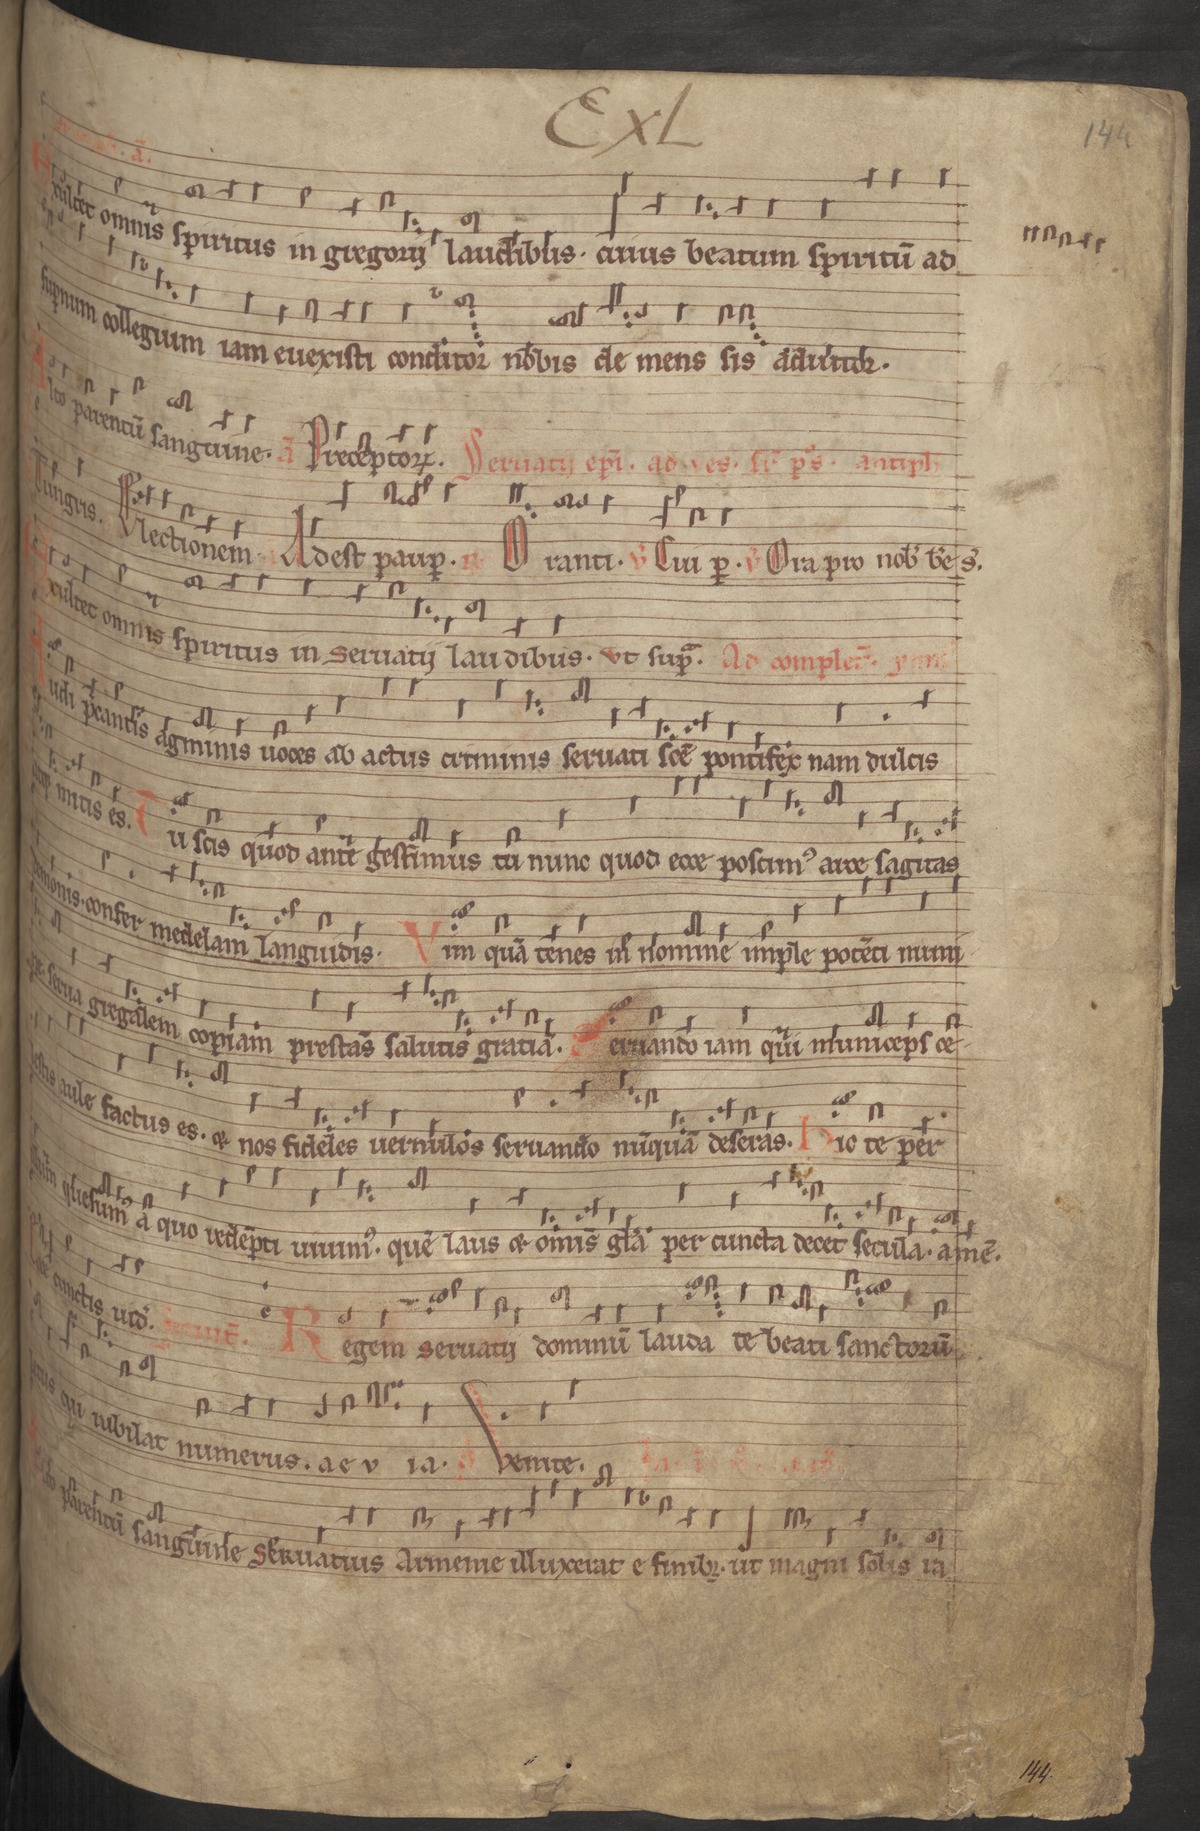 CXL
144
Exultet omnis spiritus in gregorij laudibus. cuius beatum spiritū ad
supnum collegium iam euexisti conditor nobis de mens sis adiutor.
Alto parentū sanguine. ā Preceptorꝝ. Seruatij epī. ad ves. sr̄ ps̄. antiph
Tungris. V lectionem Adest paup. R Oranti. v Cui p. v Ora pro nob be s.
Exultet omnis spiritus in Seruatij laudibus. vt sup̄. Ad complet. ymn
Audi p̄cantis agminis uoces ab actus criminis seruati sc̄e pontifex nam dulcis
atqꝫ mitis es. Tu scis quod ante gessimus tu nunc quod ecce poscimꝰ arce sagittas
demonis. confer medelam languidis. Vim quā tenes in nomine imple potēti numi
ne. serua gregalem copiam prestās salutis gratiā. Seruando iam qui municeps ce
lestis aule factus es. et nos fideles uernulos seruando nūquā deseras. Hic te per
xp̄m gliesum a quo redēpti uiuimꝰ. quē laus et om̄is gl̄a per cuncta decet secula. amē.
cunctis uid. Inuit. Regem Seruatij dominū lauda te beati sanctorū
letus qui iubilat numerus. ae v ia. ps Venite.
Alto parentū sanguine Seruatius Armenie illuxerat e finibꝫ. ut magni solis ia
144.